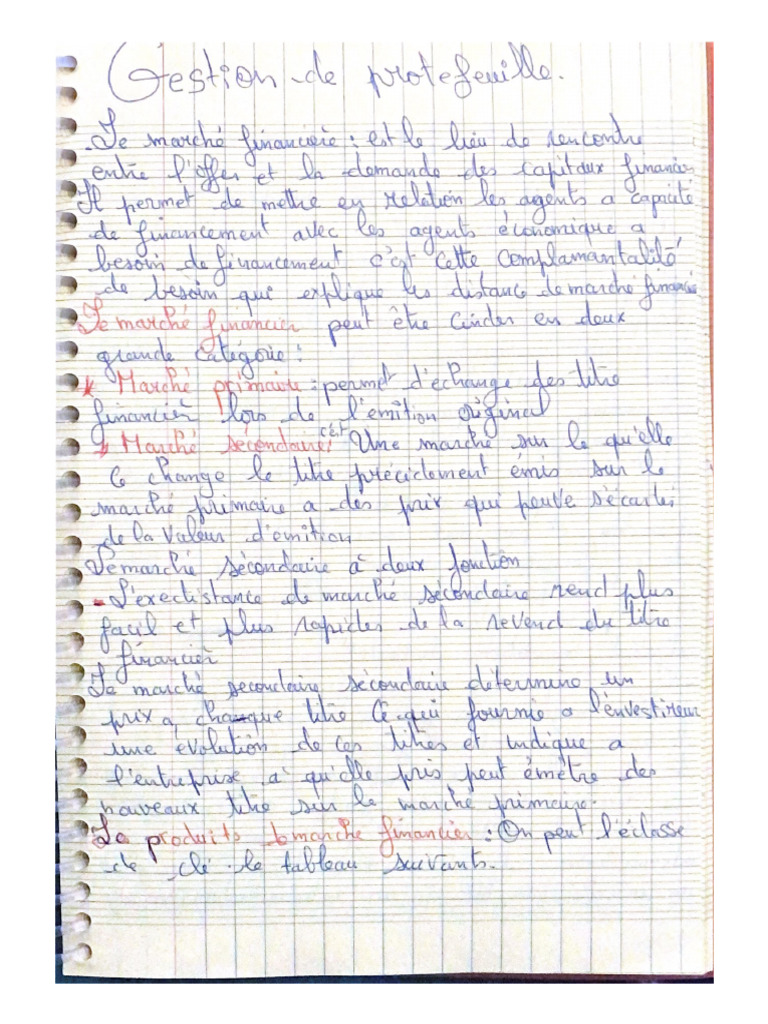 Gestion de protefeuille.
Le marché financière : est le lieu de rencontre
entre l'offer et la demande des capitaux financier
Il permet de mettre en relation les agents a capacité
de financement avec les agents économique a
besoin de financement c'est cette complamantalité
de besoin qui explique les distance de marché financie
Le marché financier peut être cinder en deux
grande catégorie :
* Marché primaire : permet d'échange des titre
financier lors de l'emition original
* Marché sécondaire : c'est Une marché sur le qu'elle
ce change le titre précidement émis sur le
marché primaire a des prix qui peuve s'écarter
de la valeur d'emition
Le marché sécondaire à deux fonction
- L'exedistance de marché sécondaire rend plus
facil et plus rapides de la revend du titre
financier
Le marché secondaire sécondaire détermine un
prix a chaque titre ce qui fournie a l'envestireur
une évolution de ces titres et indique a
l'entreprise a qu'elle pris peut émètre des
nouveaux titre sur le marché primaire.
Le produits marché financier : On peut l'éclasse
de clé le tableau suivants.